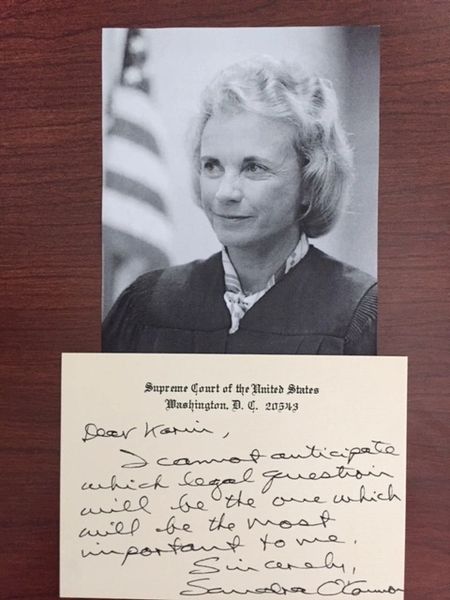 Supreme Court of the United States
Washington, D. C. 20543
Dear Karin,
I cannot anticipate
which legal question
will be the one which
will be the most
important to me.
Sincerely,
Sandra O'Connor